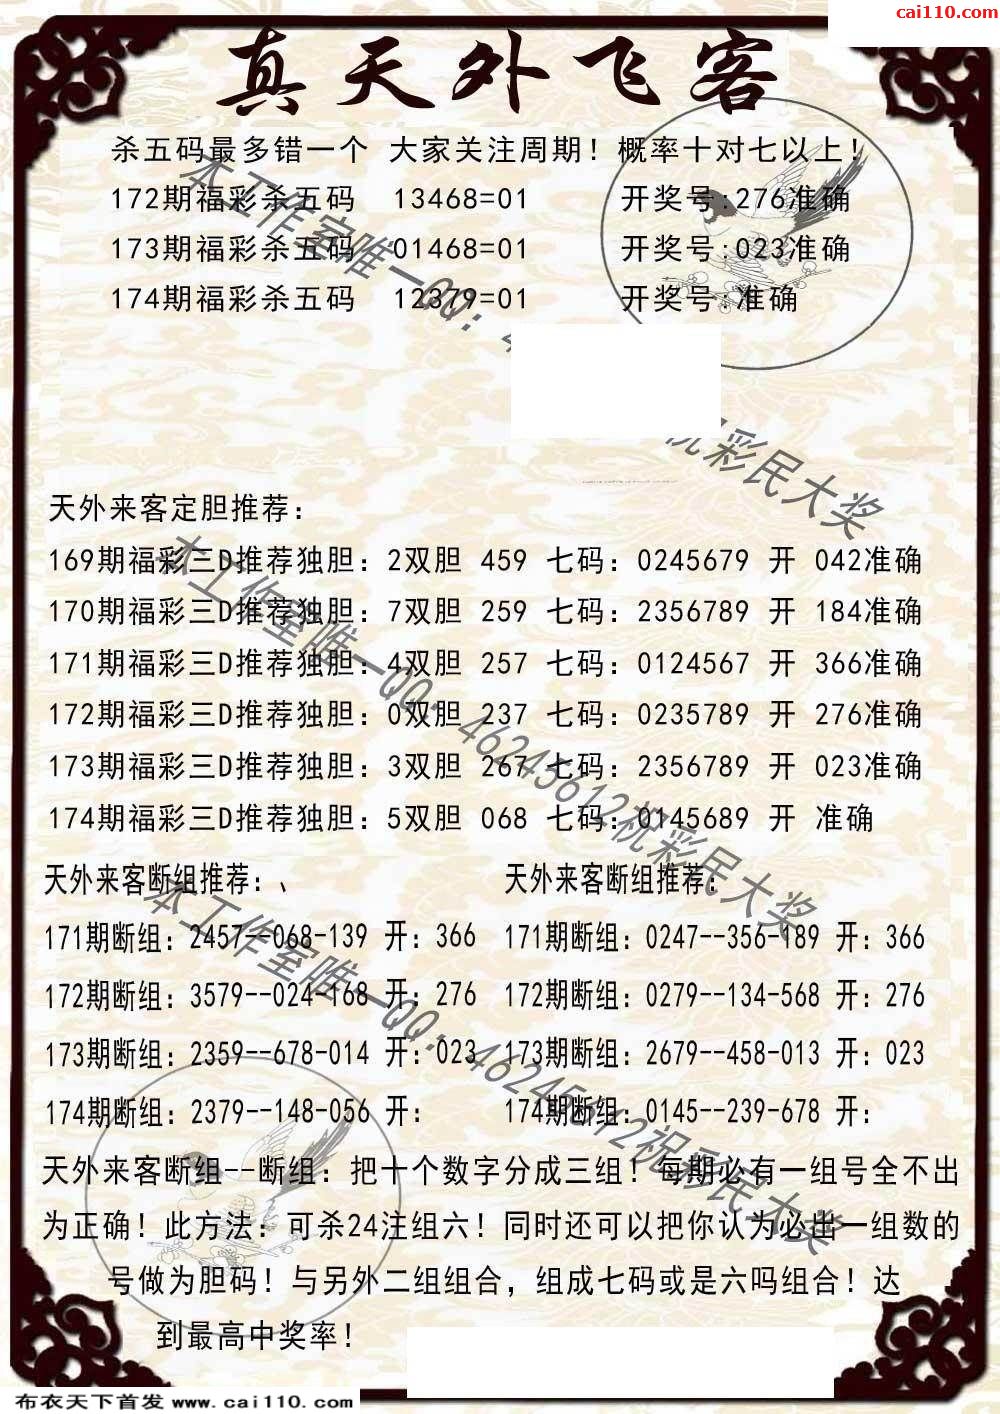 cai110.com
真天外飞客
杀五码最多错一个 大家关注周期！概率十对七以上！
172期福彩杀五码 13468=01 开奖号:276准确
173期福彩杀五码 01468=01 开奖号:023准确
174期福彩杀五码 12379=01 开奖号:准确
本工作室唯一QQ：4
祝彩民大奖
天外来客定胆推荐：
169期福彩三D推荐独胆：2双胆 459 七码：0245679 开 042准确
170期福彩三D推荐独胆：7双胆 259 七码：2356789 开 184准确
171期福彩三D推荐独胆：4双胆 257 七码：0124567 开 366准确
172期福彩三D推荐独胆：0双胆 237 七码：0235789 开 276准确
173期福彩三D推荐独胆：3双胆 267 七码：2356789 开 023准确
174期福彩三D推荐独胆：5双胆 068 七码：0145689 开 准确
本工作室唯一QQ：46245612祝彩民大奖
天外来客断组推荐：、 天外来客断组推荐：
171期断组：2457--068-139 开：366 171期断组：0247--356-189 开：366
172期断组：3579--024-168 开：276 172期断组：0279--134-568 开：276
173期断组：2359--678-014 开：023 173期断组：2679--458-013 开：023
174期断组：2379--148-056 开： 174期断组：0145--239-678 开：
本工作室唯一QQ：46245612祝彩民大奖
天外来客断组--断组：把十个数字分成三组！每期必有一组号全不出
为正确！此方法：可杀24注组六！同时还可以把你认为必出一组数的
号做为胆码！与另外二组组合，组成七码或是六吗组合！达
到最高中奖率！
布衣天下首发 www.cai110.com